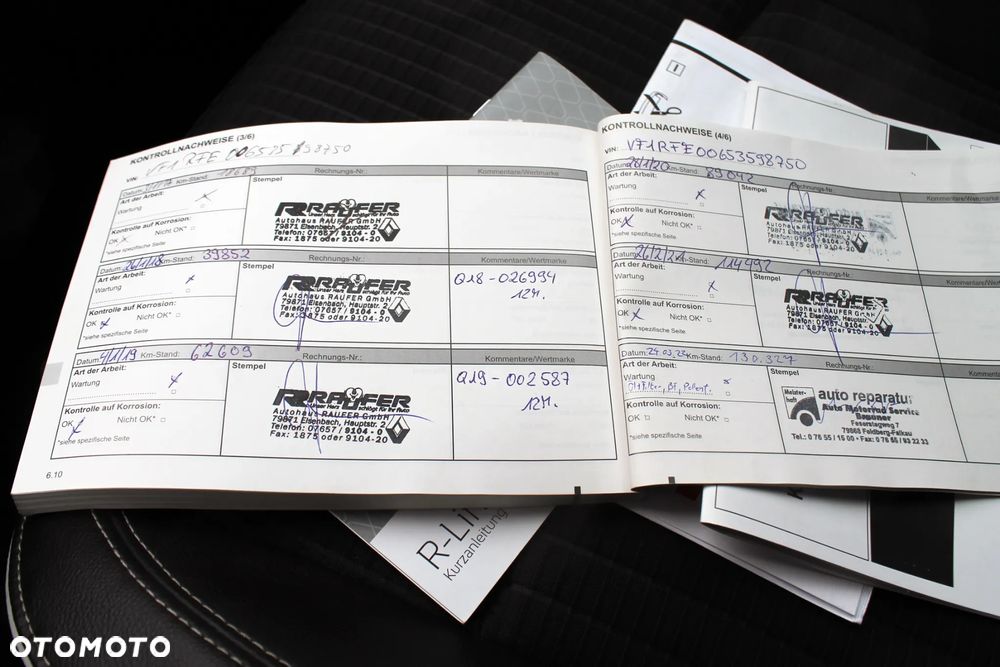 KONTROLLNACHWEISE (3/6)
VIN: VF1RFE00653598750
Datum: Km-Stand: 18683 Rechnungs-Nr. Kommentare/Wertmarke
Art der Arbeit: Stempel
Wartung x
Kontrolle auf Korrosion:
OK x Nicht OK*
*siehe spezifische Seite
RAUFER
Unser Herz schlägt für Ihr Auto
Autohaus RAUFER GmbH
79871 Eisenbach, Hauptstr. 2
Telefon: 07657 / 9104 - 0
Fax: 1875 oder 9104-20
Datum: 26/1/18 Km-Stand: 39852 Rechnungs-Nr.: Kommentare/Wertmarke
Art der Arbeit: Stempel
Wartung x
Kontrolle auf Korrosion:
OK x Nicht OK*
*siehe spezifische Seite
RAUFER
schlägt für Ihr Auto
Autohaus RAUFER GmbH
79871 Eisenbach, Hauptstr. 2
Telefon: 07657 / 9104 - 0
Fax: 1875 oder 9104-20
Q18-026994
12M.
Datum: 4/1/19 Km-Stand: 62609 Rechnungs-Nr.: Kommentare/Wertmarke
Art der Arbeit: Stempel
Wartung x
Kontrolle auf Korrosion:
OK x Nicht OK*
*siehe spezifische Seite
RAUFER
Unser Herz schlägt für Ihr Auto
Autohaus RAUFER GmbH
79871 Eisenbach, Hauptstr. 2
Telefon: 07657 / 9104 - 0
Fax: 1875 oder 9104-20
Q19-002587
12M.
6.10
KONTROLLNACHWEISE (4/6)
VIN: VF1RFE00653598750
Datum: 26/1/20 Km-Stand: 89042 Rechnungs-Nr. Kommentare/Wertmarke
Art der Arbeit: Stempel
Wartung x
Kontrolle auf Korrosion:
OK x Nicht OK*
*siehe spezifische Seite
RAUFER
Autohaus RAUFER GmbH
79871 Eisenbach, Hauptstr. 2
Telefon: 07657 / 9104 - 0
Fax: 1875 oder 9104-20
Datum: Km-Stand: 114492 Rechnungs-Nr. Kommentare/Wertmarke
Art der Arbeit: Stempel
Wartung x
Kontrolle auf Korrosion:
OK x Nicht OK*
*siehe spezifische Seite
RAUFER
Autohaus RAUFER GmbH
79871 Eisenbach, Hauptstr. 2
Telefon: 07657 / 9104 - 0
Fax: 1875 oder 9104-20
Datum: 24.03.22 Km-Stand: 130.327 Rechnungs-Nr.:
Art der Arbeit: Stempel
Wartung x
Kontrolle auf Korrosion:
OK Nicht OK*
*siehe spezifische Seite
Meister-
haft
auto reparatur
Auto Motorrad Service
79868 Feldberg-Falkau
Tel.: 0 76 55 / 15 00 • Fax: 0 76 55 / 93 22 33
Kurzanleitung
OTOMOTO